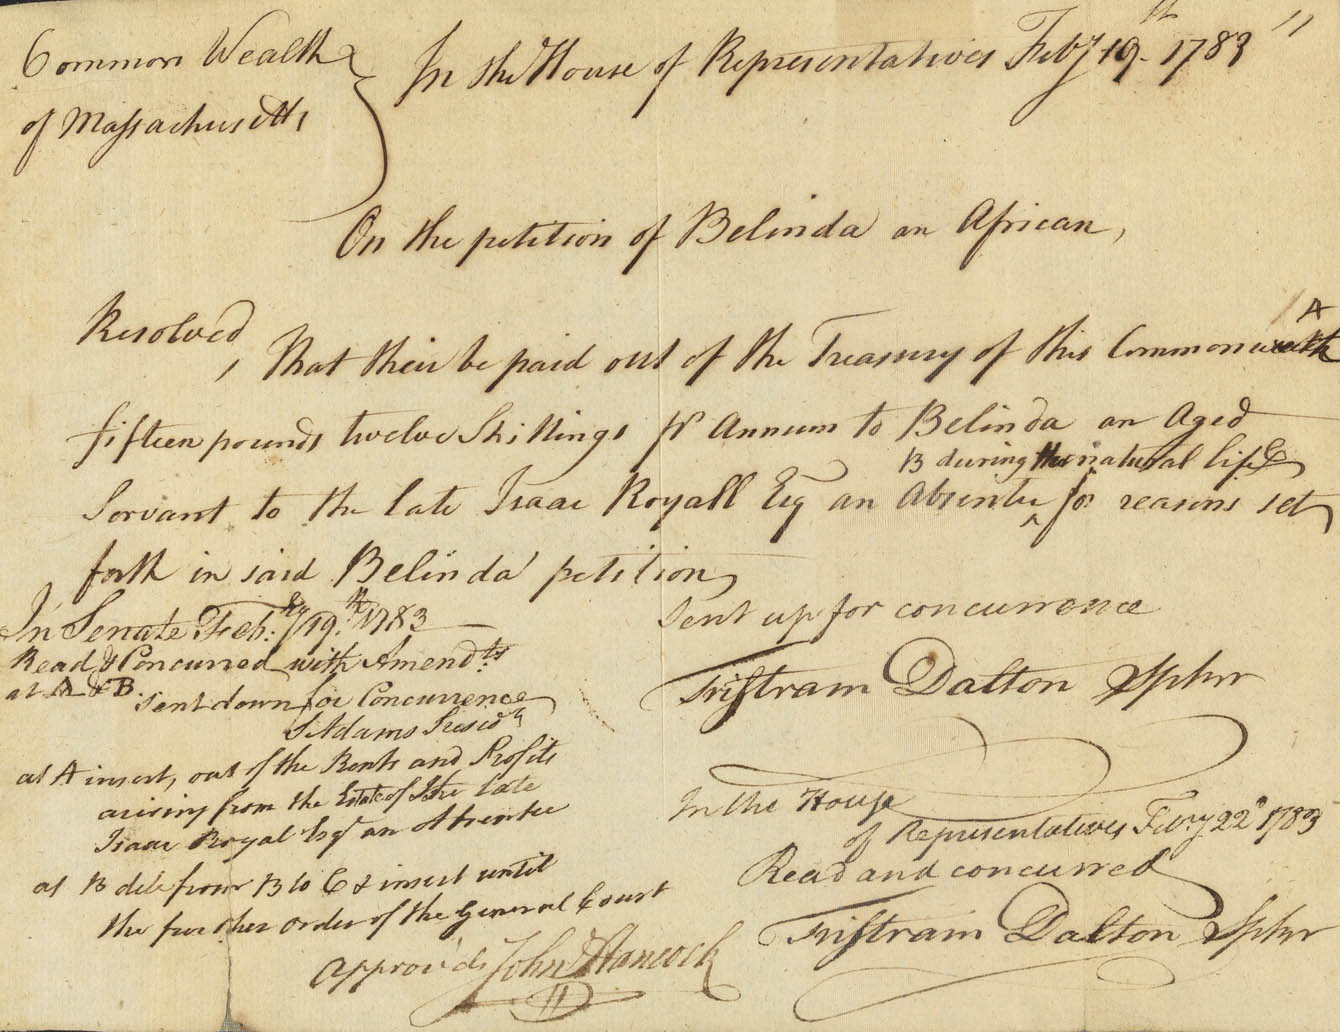 Common Wealth
of Massachusetts
In the House of Representatives Feby 19th 1783
On the petition of Belinda an African,
Resolved, that their be paid out of the Treasury of this Commonwealth A
fifteen pounds twelve Shillings pr Annum to Belinda an Aged
B during the natural life C
Servant to the late Isaac Royall Esq an Absentee ^ for reasons set
forth in said Belinda petition
Sent up for concurrence
Tristram Dalton Spkr
In Senate Feby 19th 1783
Read & Concurred with Amendts
at A & B. Sent down for Concurrence
S Adams Presidt
at A insert, out of the Rents and Profits
arising from the Estate of the late
Isaac Royal Esqr an Absentee
at B dele from B to C & insert until
the further order of the General Court
Approv'd John Hancock
In the House
of Representatives Feby 22d 1783
Read and concurred
Tristram Dalton Spkr